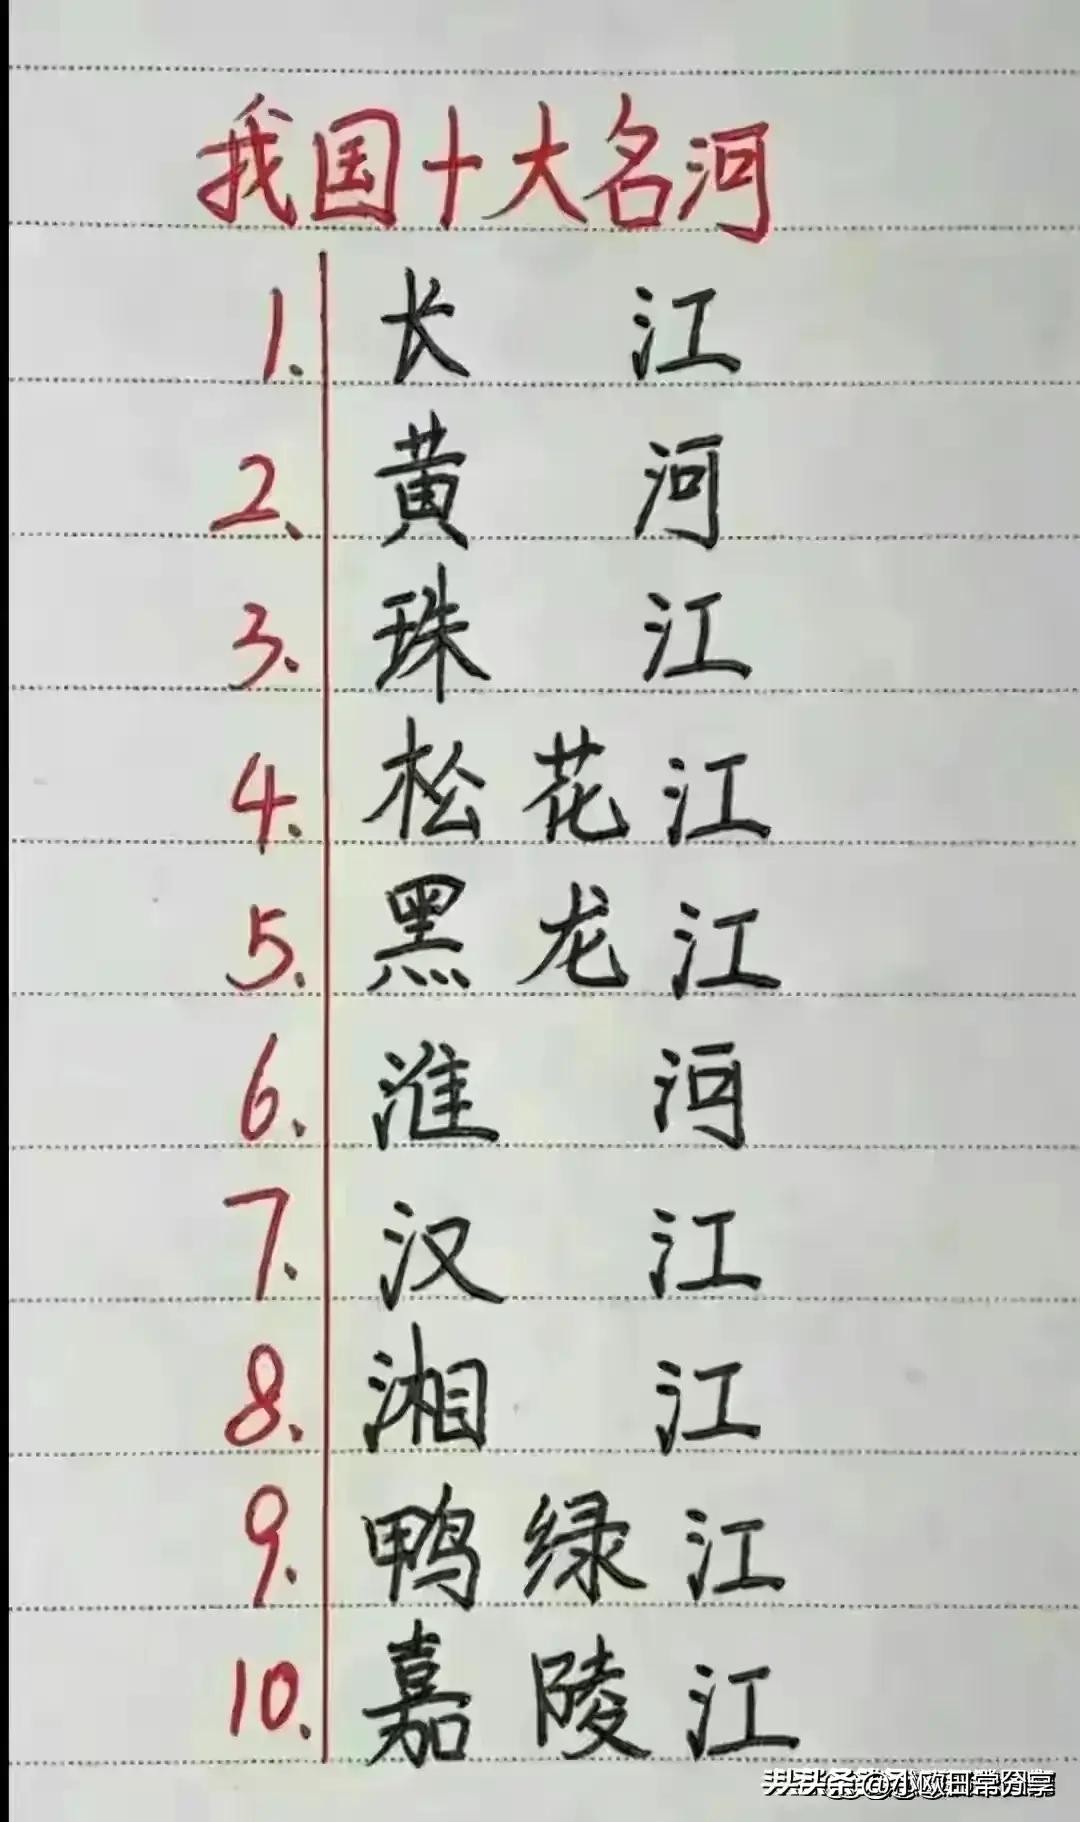 我国十大名河
1. 长江
2. 黄河
3. 珠江
4. 松花江
5. 黑龙江
6. 淮河
7. 汉江
8. 湘江
9. 鸭绿江
10. 嘉陵江
头条 @小欧日常分享